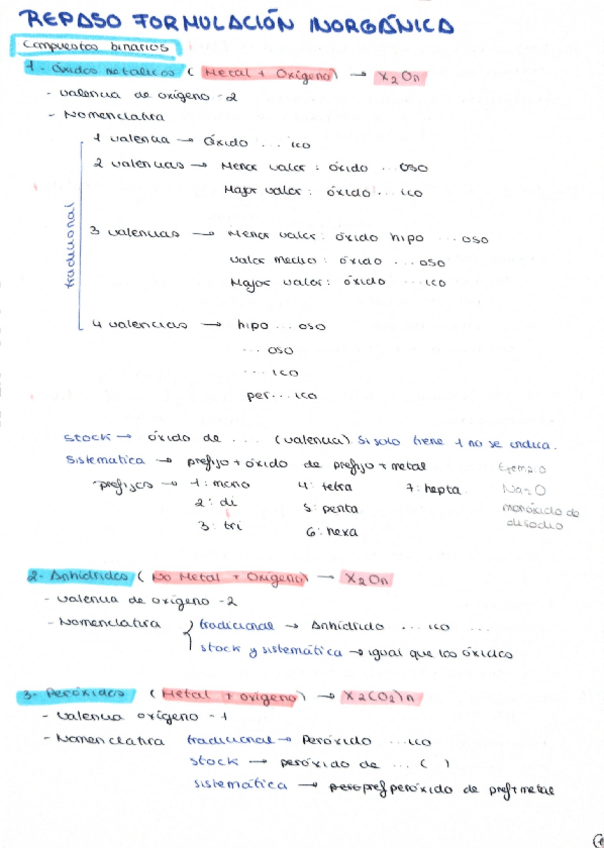 REPASO FORMULACIÓN INORGÁNICA
Compuestos binarios
1- Óxidos metálicos (Metal + Oxígeno) → X₂On
- valencia de oxígeno -2
- Nomenclatura
tradicional
1 valencia → Óxido ... ico
2 valencias → Menor valor: óxido ... oso
Mayor valor: óxido... ico
3 valencias → Menor valor: óxido hipo ... oso
valor medio: óxido ... oso
Mayor valor: óxido ... ico
4 valencias → hipo ... oso
... oso
... ico
per... ico
stock → óxido de ... (valencia) Si solo tiene 1 no se indica.
Sistematica → prefijo + óxido de prefijo + metal
prefijos → 1: mono 4: tetra 7: hepta
2: di 5: penta
3: tri 6: hexa
Ejemplo
Na₂O
monóxido de
disodio
2- Anhídridos (No Metal + Oxígeno) → X₂On
- valencia de oxígeno -2
- Nomenclatura tradicional → Anhídrido ... ico ...
stock y sistemática → igual que los óxidos
3- Peróxidos (Metal + oxígeno) → X₂(O₂)n
- Valencia oxígeno -1
- Nomenclatura tradicional → Peróxido ... ico
stock → peróxido de ... ( )
sistemática → pref peróxido de pref + metal